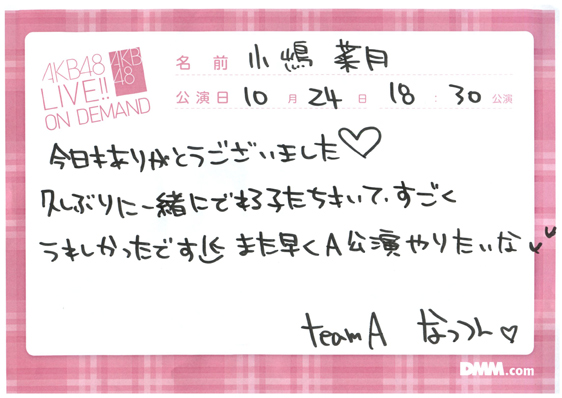 AKB48
LIVE!!
ON DEMAND
AKB
48
名前 小嶋 菜月
公演日 10月24日 18:30公演
今日もありがとうございました♡
久しぶりに一緒にでれる子たちもいて、すごく
うれしかったです また早くA公演やりたいな
teamA なっつん♡
DMM.com